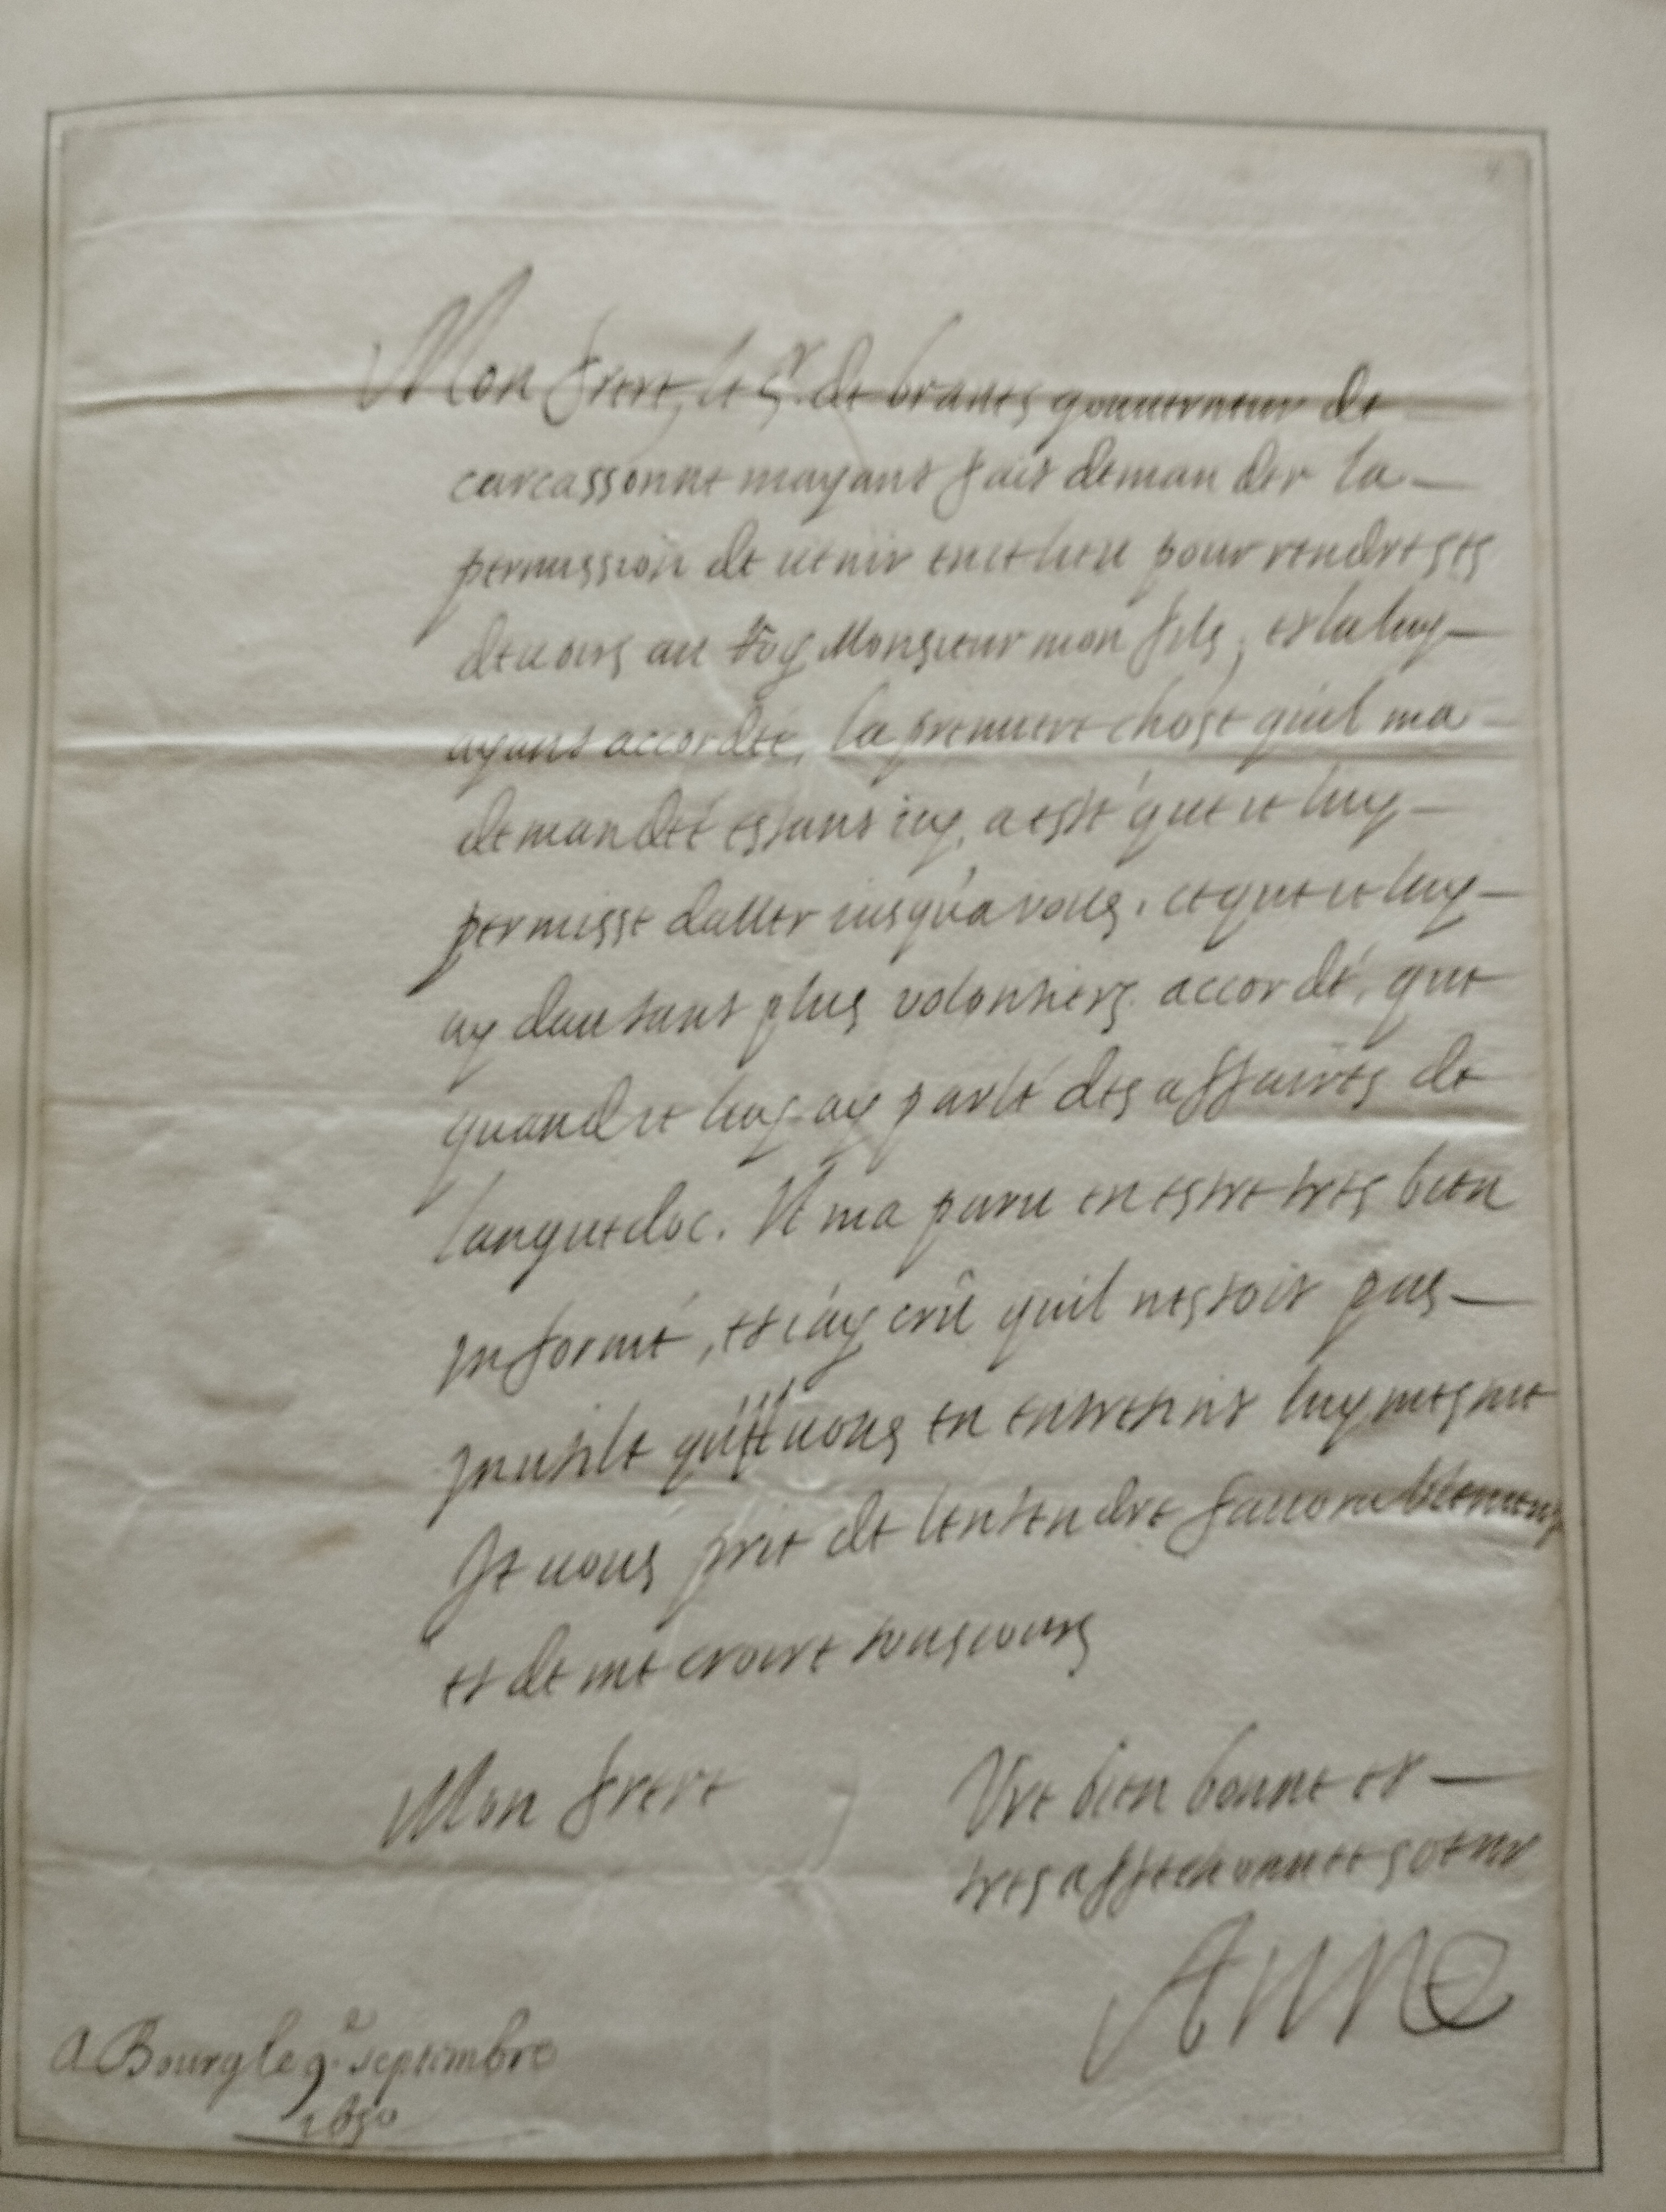 Mon frere, le Sr. de branes gouuerneur de
carcassonne mayant fait deman der la
permission de uenir en ce lieu pour rendre ses
deuoirs au Roy Monsieur mon fils, et la luy
ayant accordée, la premiere chose quil ma
demandée estant icy, a esté que ie luy
permisse daller iusqua vous. ce que ie luy
ay dautant plus volontiers accordé, que
quand ie luy ay parlé des affaires de
languedoc. Il ma paru en estre tres bien
Informé, et iay crû quil nestoit pas
Inutile quil uous en entretint luy mesme
Je uous prie de lentendre fauorablement
et de me croire tousiours
Mon frere
Vre bien bonne et
tres affectionnee soeur
Anne
A Bourg le 9.e septembre
1650